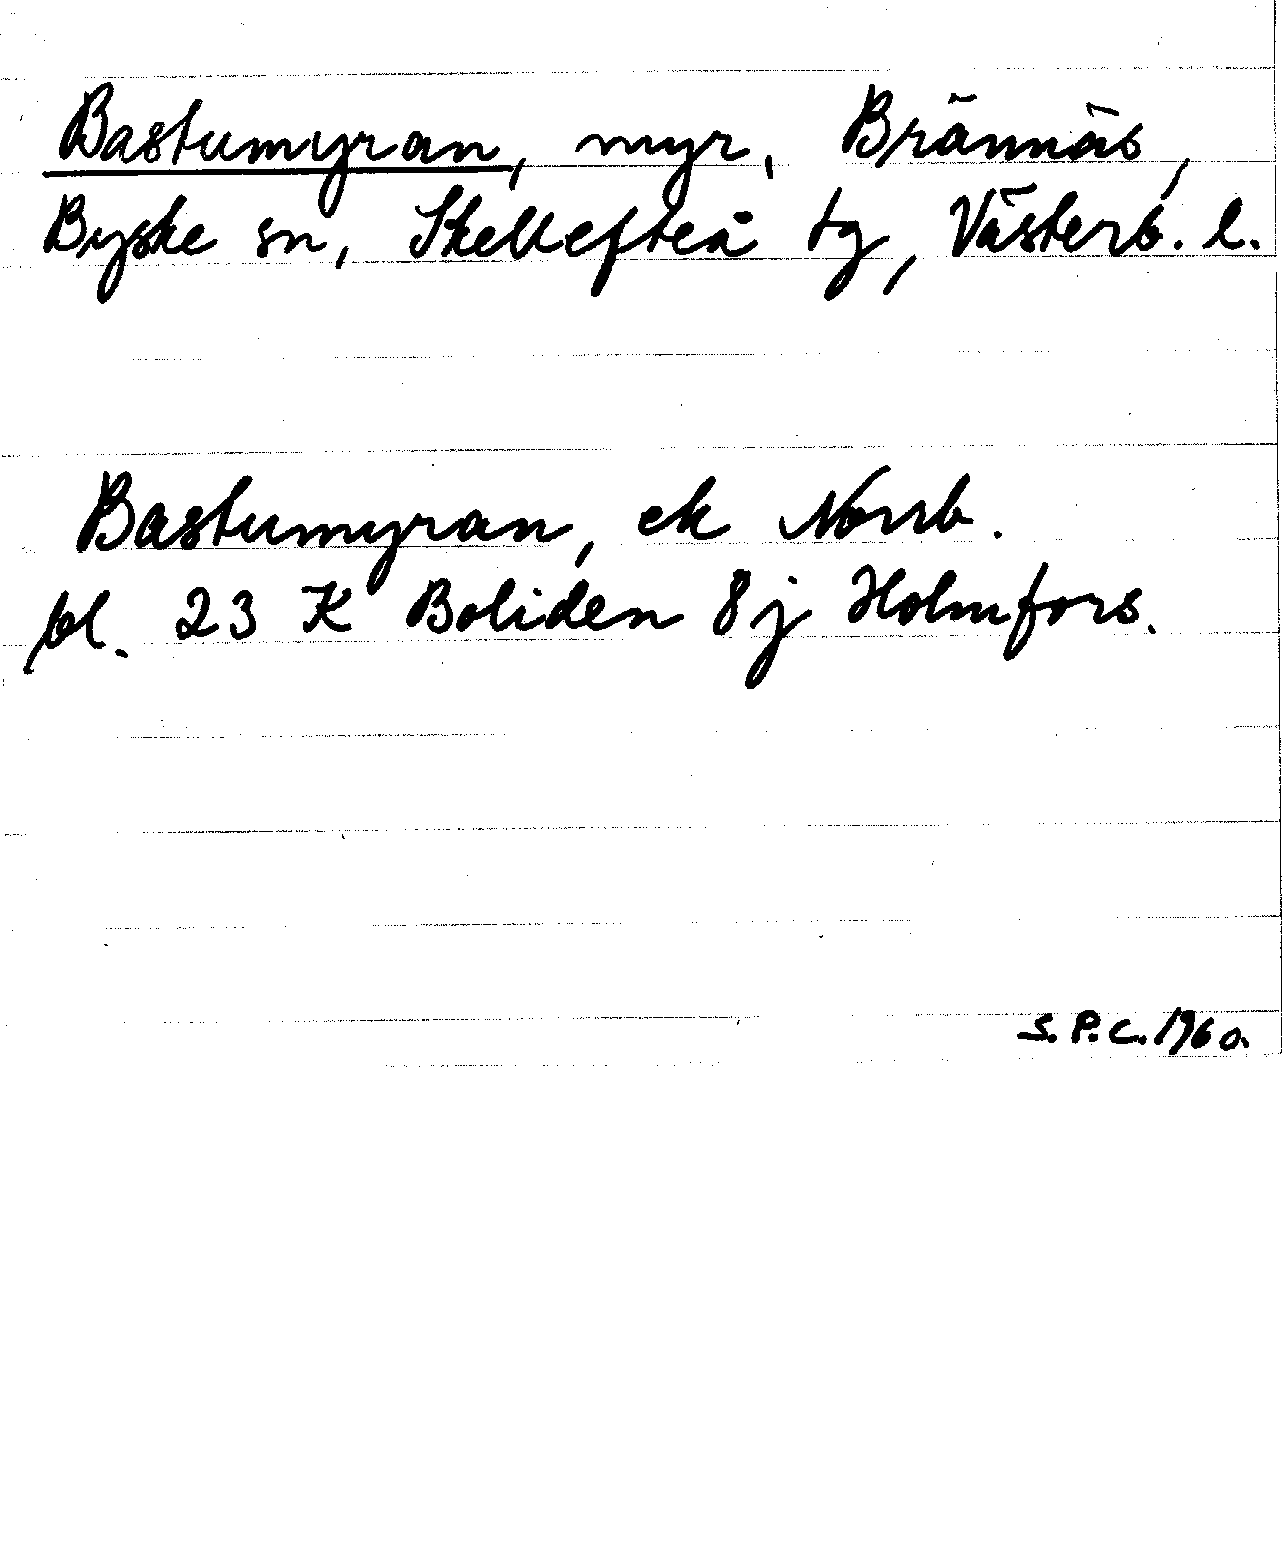 Bastumyran, myr, Brännäs,
Byske sn, Skellefteå tg, Västerb. l.
Bastumyran, ek Norrb.
bl. 23 K Boliden 8j Holmfors.
S.P.C. 1960.